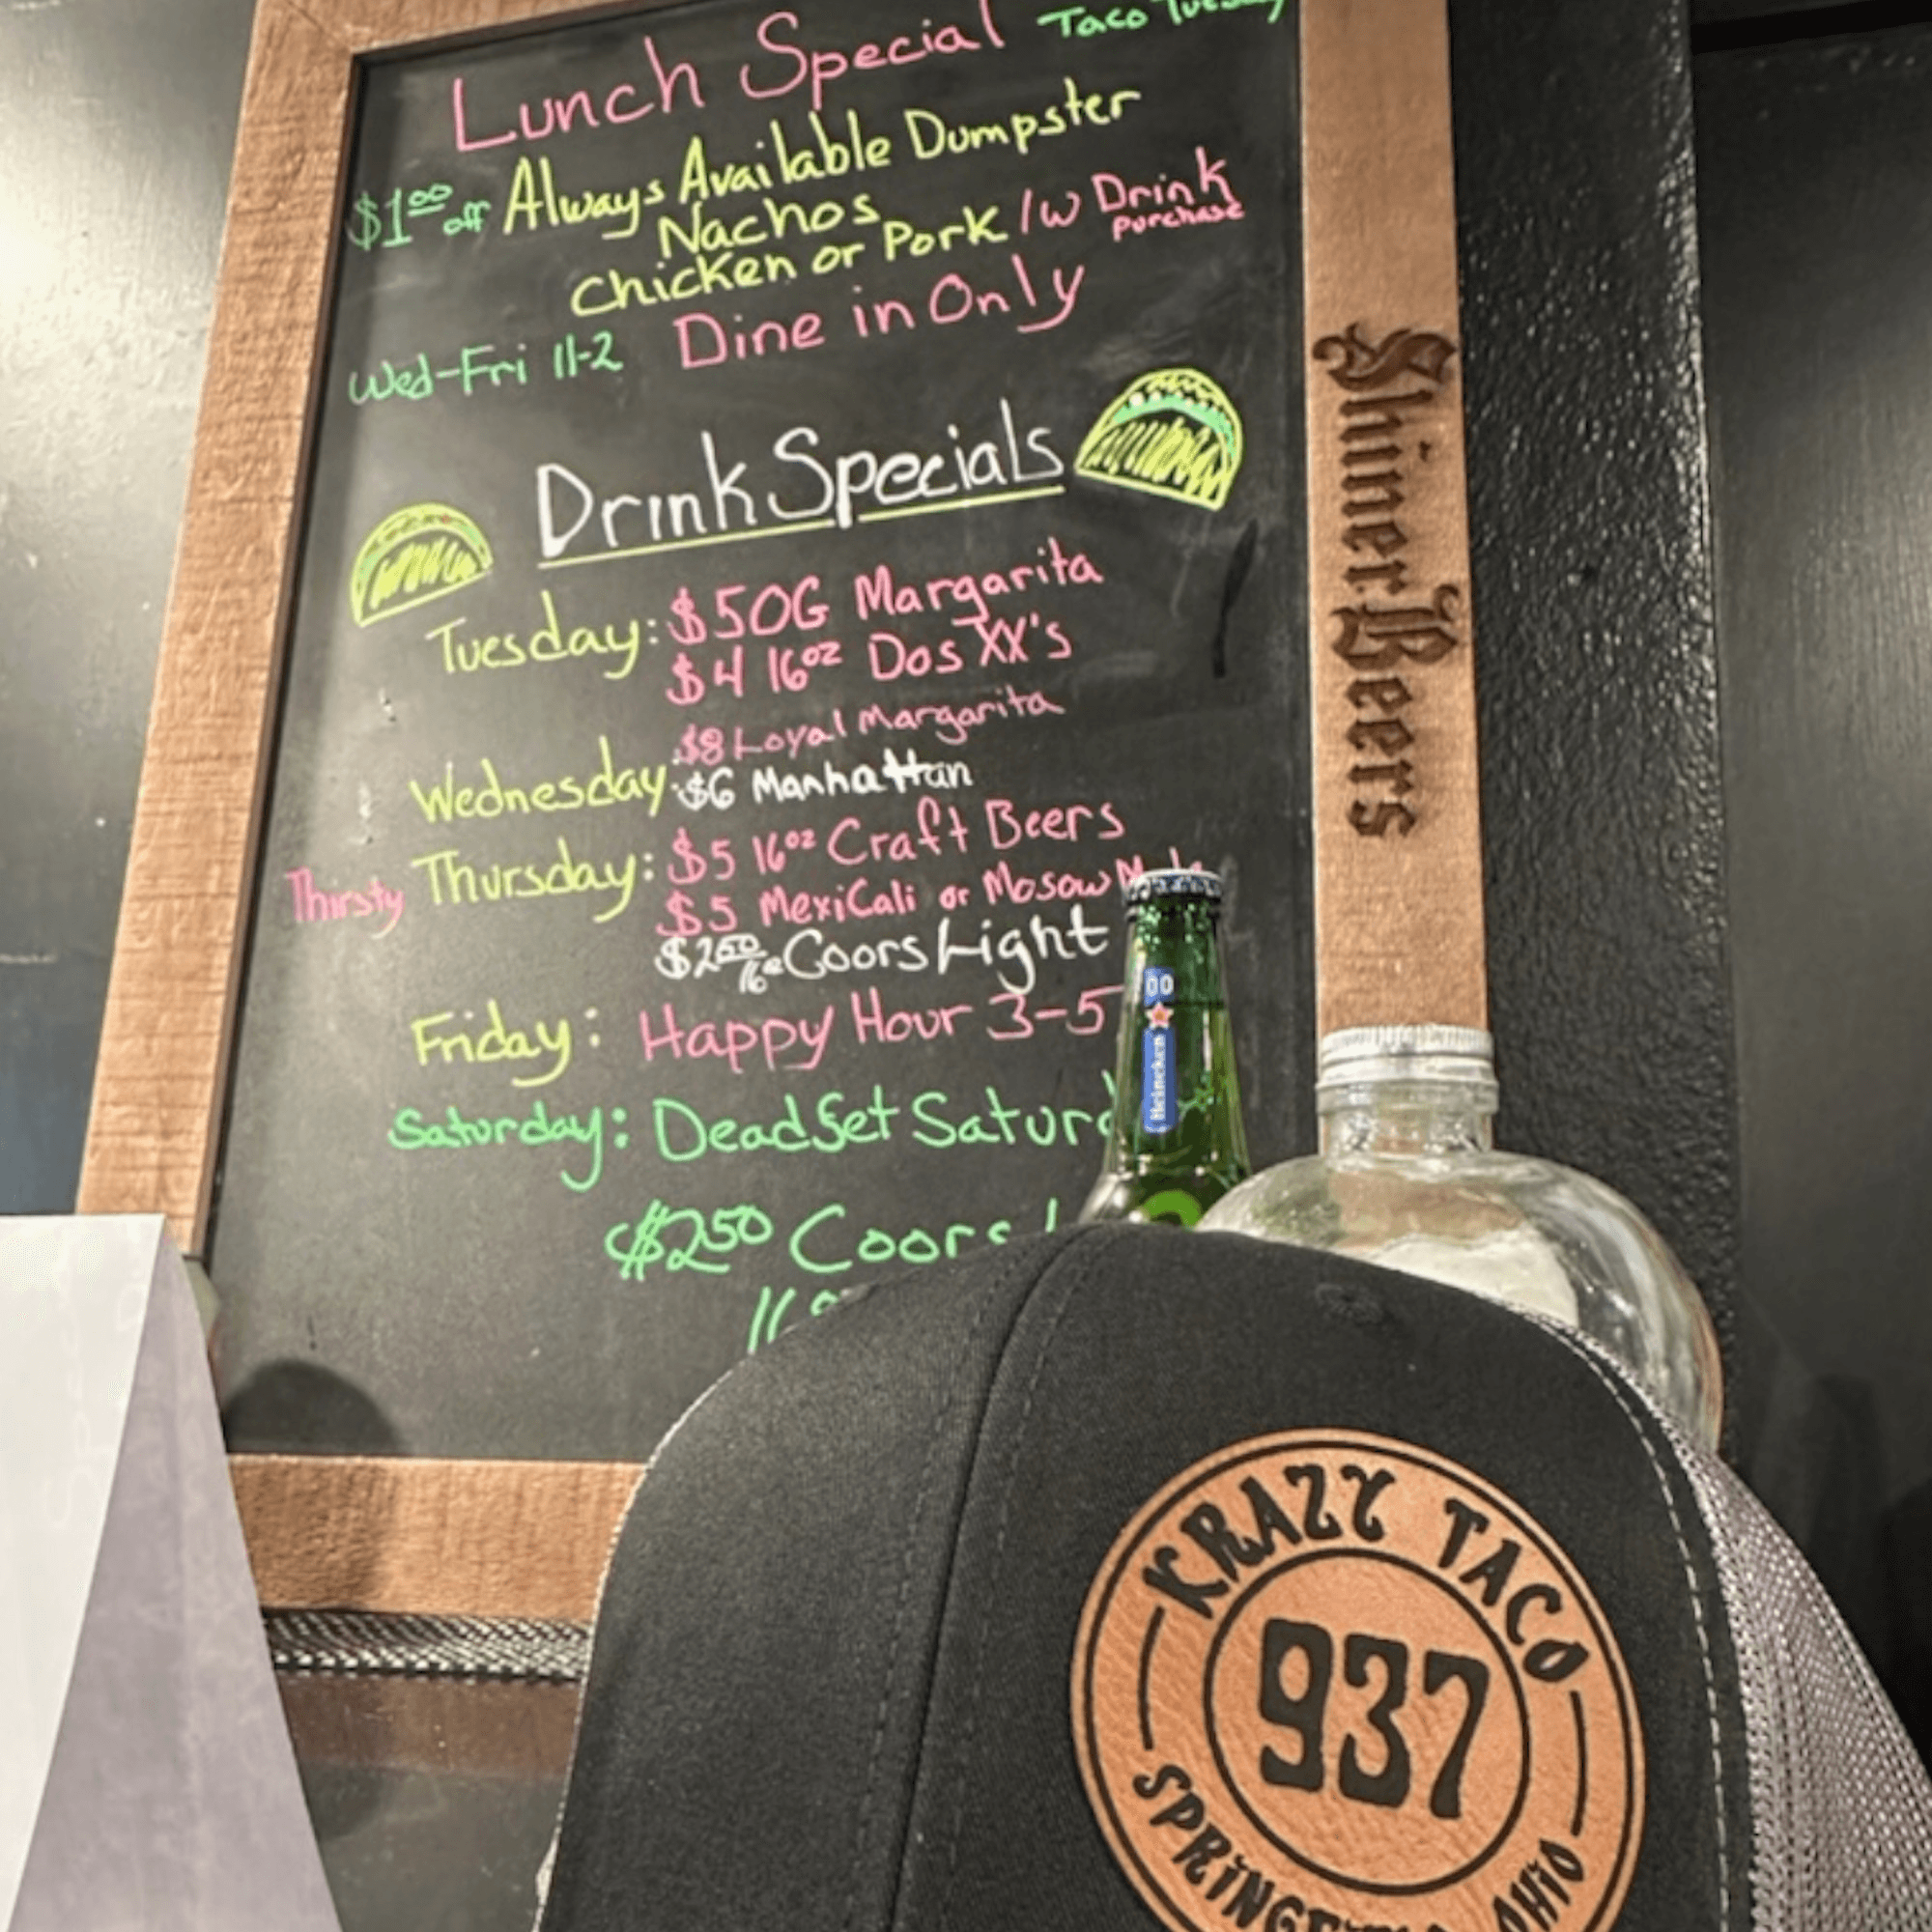 Lunch Special
Taco Tuesday
$1.00 off Always Available Dumpster
Nachos
Chicken or Pork /w Drink
purchase
Wed-Fri 11-2 Dine in Only
Drink Specials
Tuesday: $5 OG Margarita
$4 16oz Dos XX's
$8 Loyal Margarita
Wednesday: $6 Manhattan
Thirsty Thursday: $5 16oz Craft Beers
$5 MexiCali or Mosow
$2.50/16oz Coors Light
Friday: Happy Hour 3-5
Saturday: Dead Set Satur
$2.50 Coors
16
Shiner Beers
00
Heineken
KRAZY TACO
937
OHIO